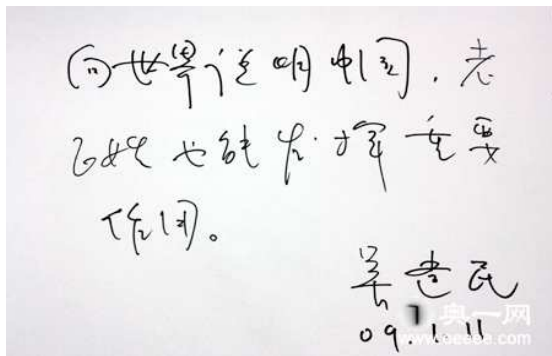 向世界说明中国，老
百姓也能发挥重要
作用。
吴建民
09.1.11
奥一网
www.oeeee.com